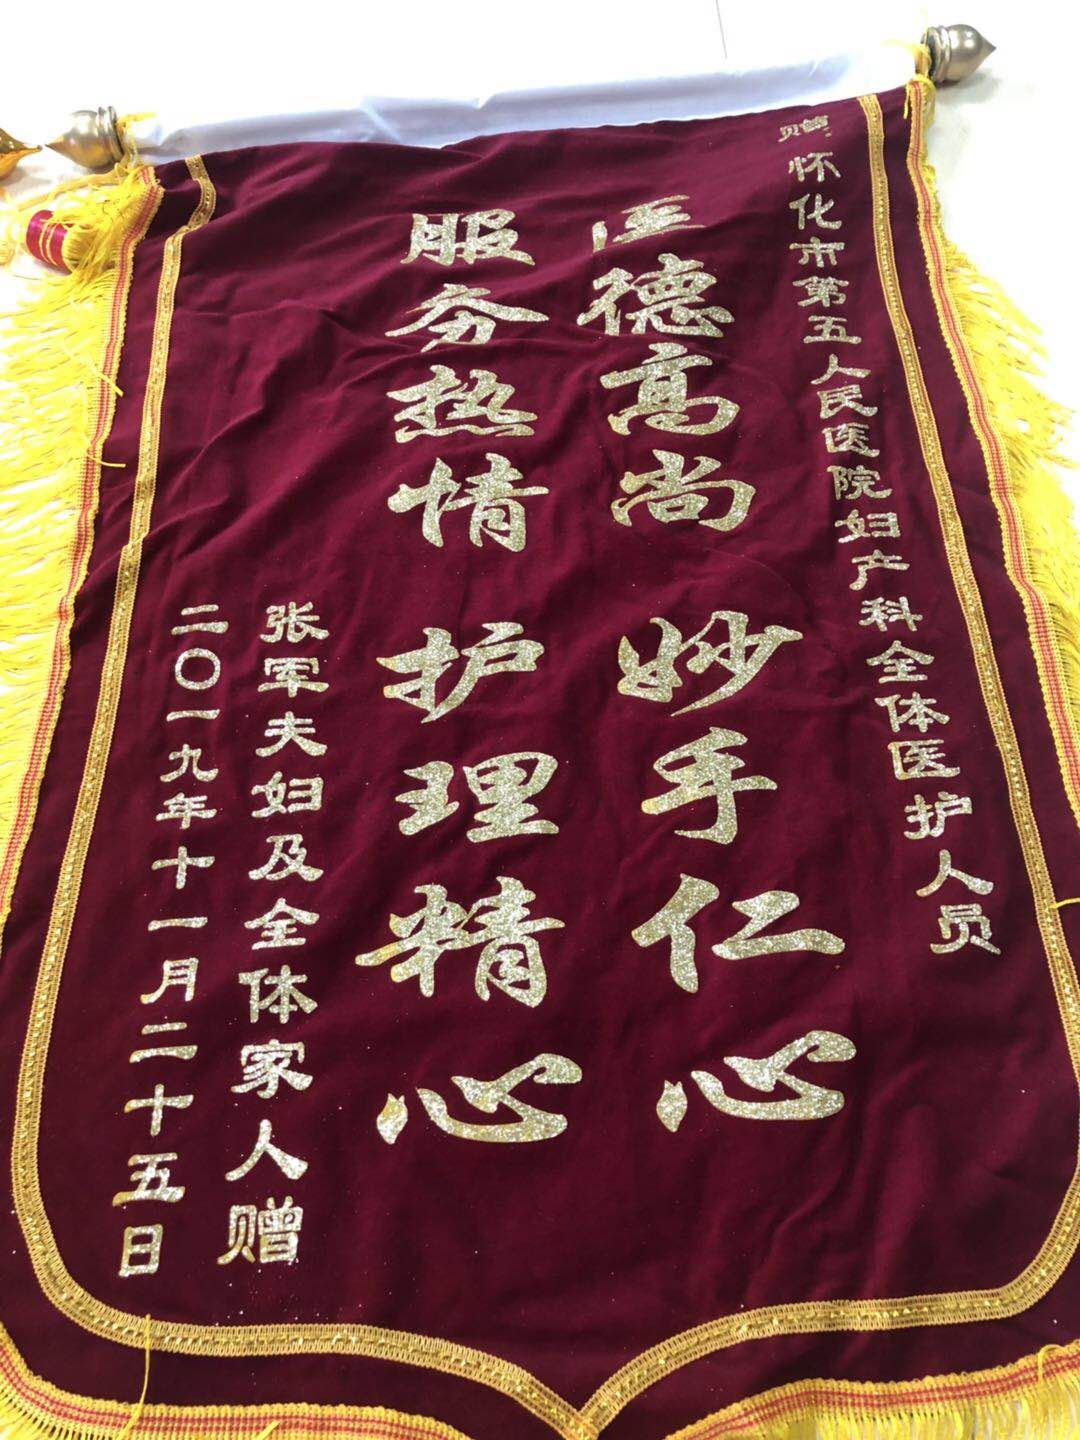 赠:怀化市第五人民医院妇产科全体医护人员
医德高尚 妙手仁心
服务热情 护理精心
张军夫妇及全体家人赠
二〇一九年十一月二十五日